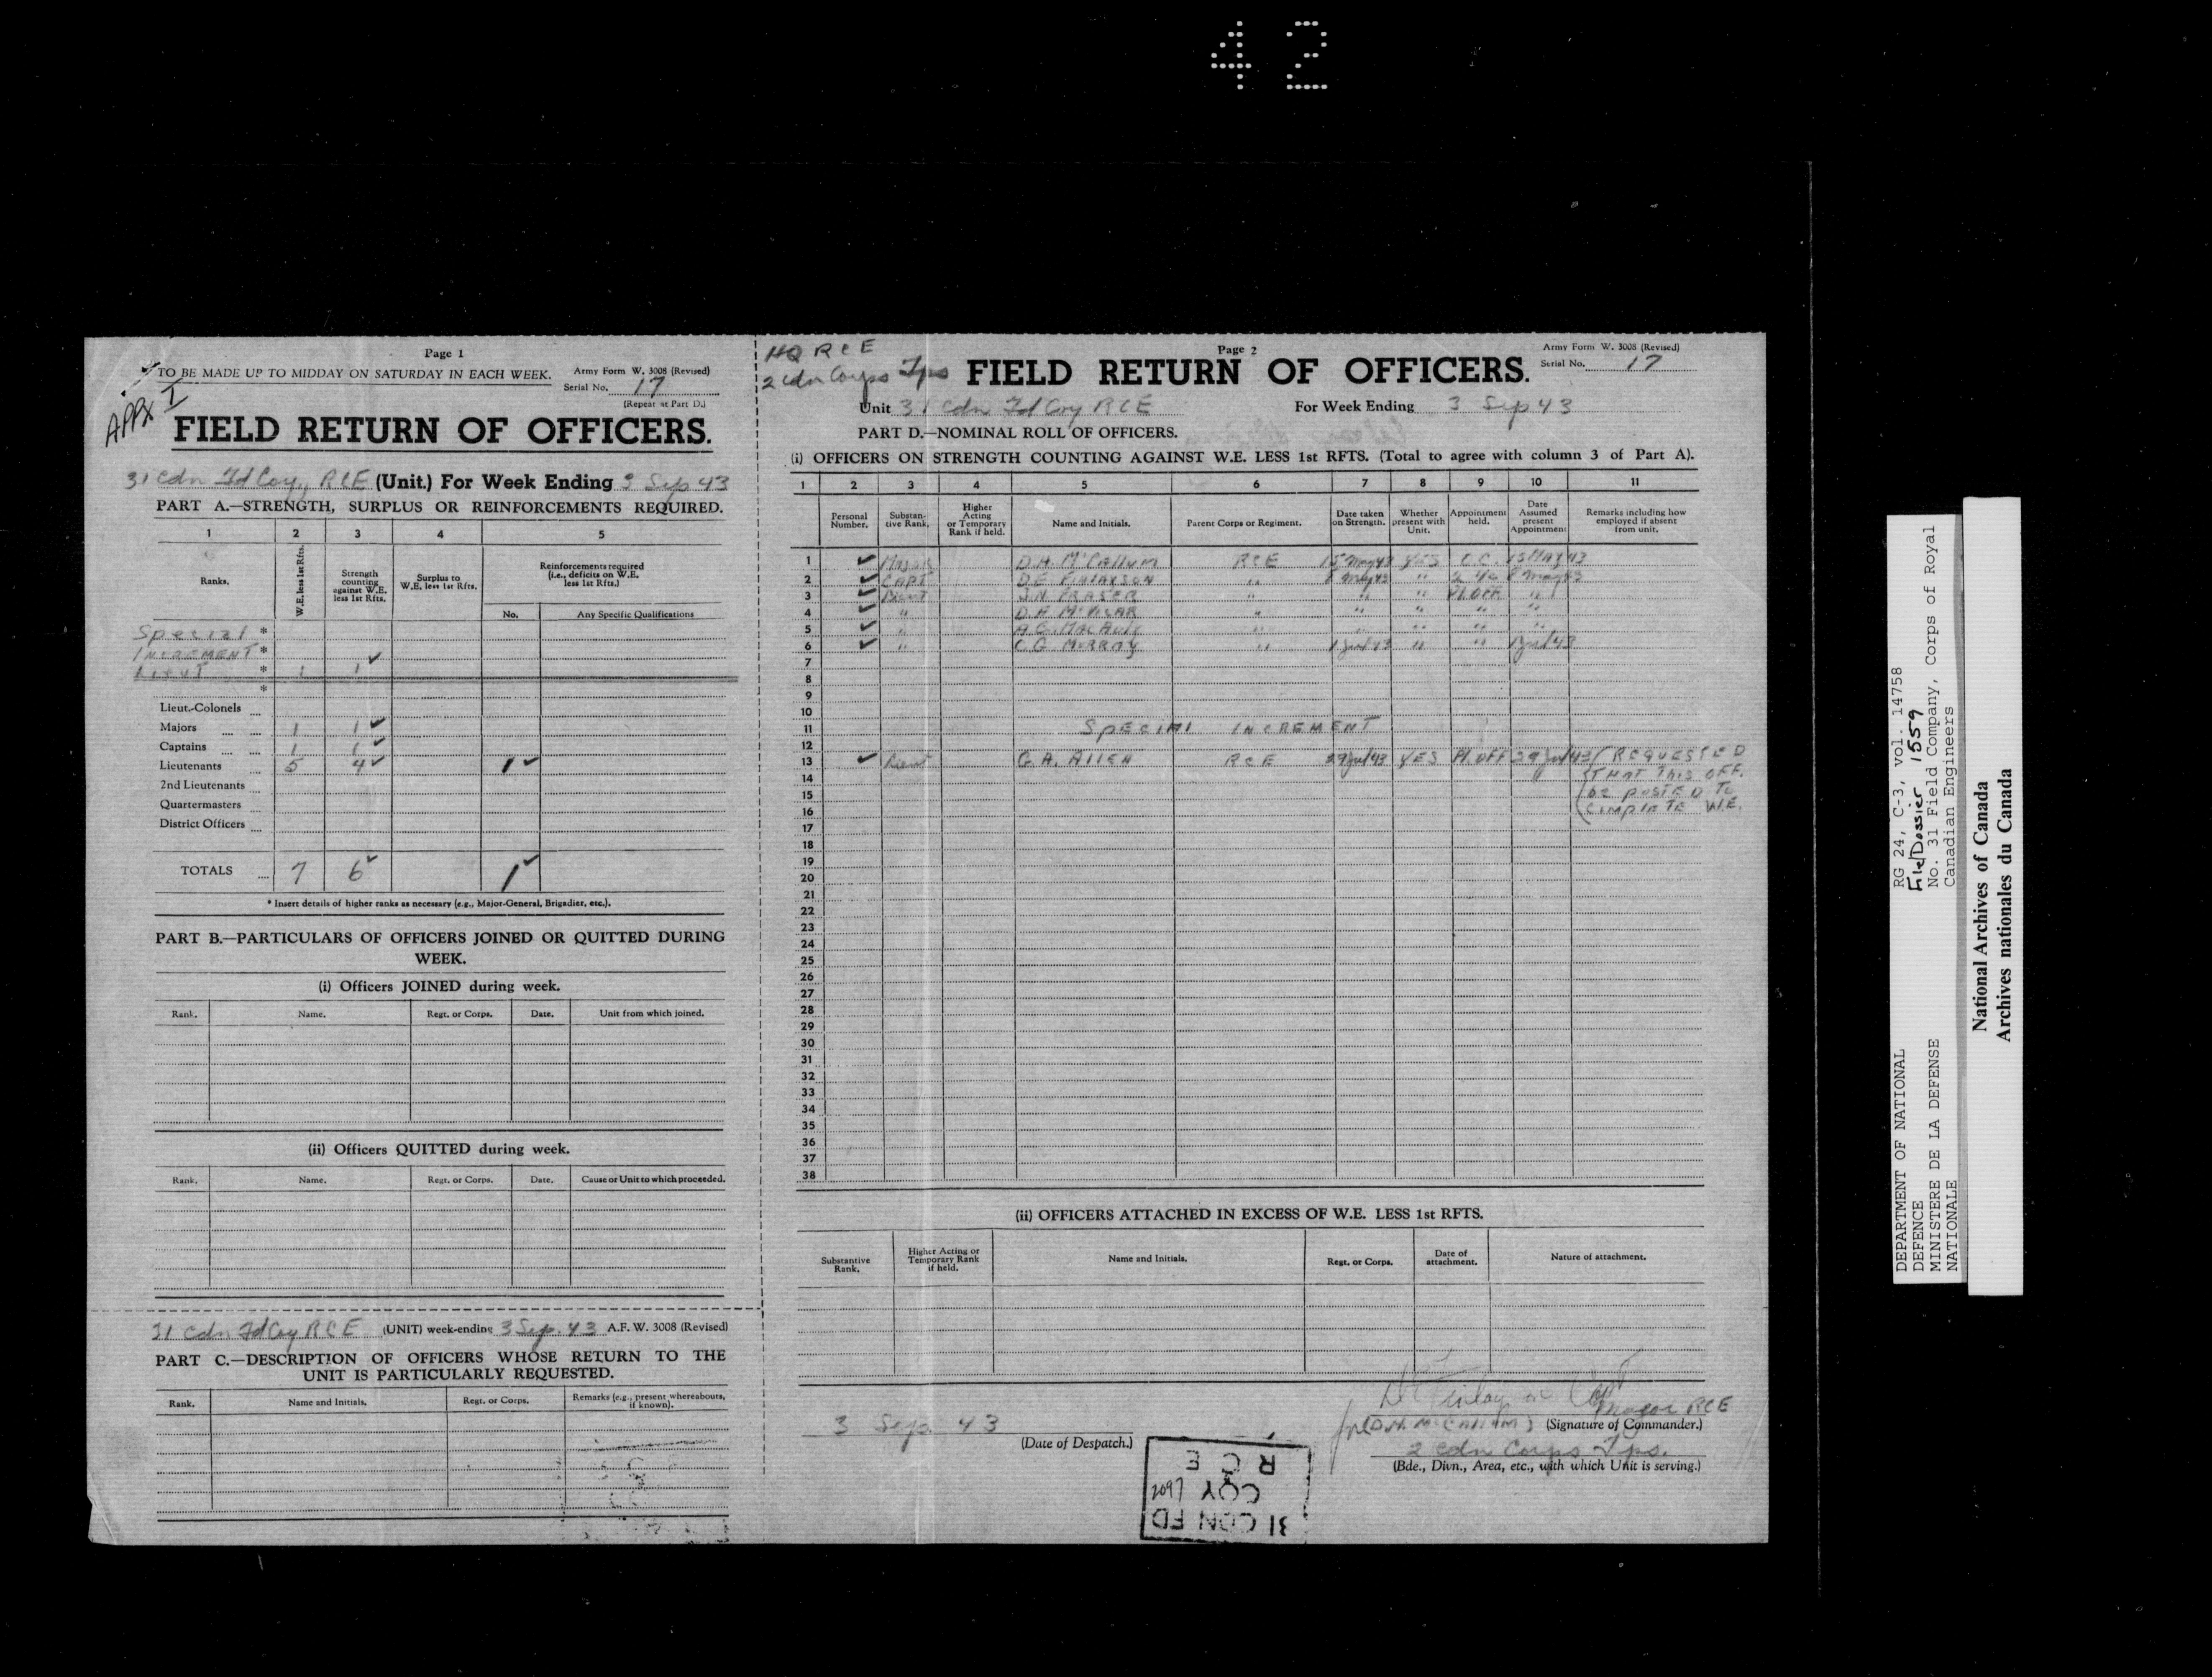 42
Page 1
TO BE MADE UP TO MIDDAY ON SATURDAY IN EACH WEEK.
Army Form W. 3008 (Revised)
Serial No. 17
(Repeat at Part D.)
APPX I
FIELD RETURN OF OFFICERS.
31 Cdn Fd Coy, RCE (Unit.) For Week Ending 3 Sep 43
PART A.—STRENGTH, SURPLUS OR REINFORCEMENTS REQUIRED.
1 2 3 4 5
Ranks.
W.E. less 1st Rfts.
Strength counting against W.E. less 1st Rfts.
Surplus to W.E. less 1st Rfts.
Reinforcements required (i.e., deficits on W.E. less 1st Rfts.)
No. Any Specific Qualifications
Special *
INCREMENT *
Lieut * 1 1
*
Lieut.-Colonels ...
Majors ... ... 1 1
Captains ... ... 1 1
Lieutenants ... 5 4 1
2nd Lieutenants ...
Quartermasters ...
District Officers ...
TOTALS ... 7 6 1
* Insert details of higher ranks as necessary (e.g., Major-General, Brigadier, etc.).
PART B.—PARTICULARS OF OFFICERS JOINED OR QUITTED DURING
WEEK.
(i) Officers JOINED during week.
Rank. Name. Regt. or Corps. Date. Unit from which joined.
(ii) Officers QUITTED during week.
Rank. Name. Regt. or Corps. Date. Cause or Unit to which proceeded.
31 Cdn Fd Coy RCE (UNIT) week-ending 3 Sep. 43 A.F.W. 3008 (Revised)
PART C.—DESCRIPTION OF OFFICERS WHOSE RETURN TO THE
UNIT IS PARTICULARLY REQUESTED.
Rank. Name and Initials. Regt. or Corps. Remarks (e.g., present whereabouts, if known).
HQ RCE
2 Cdn Corps Tps
Page 2
FIELD RETURN OF OFFICERS.
Army Form W. 3008 (Revised)
Serial No. 17
Unit 31 Cdn Fd Coy RCE For Week Ending 3 Sep 43
PART D.—NOMINAL ROLL OF OFFICERS.
(i) OFFICERS ON STRENGTH COUNTING AGAINST W.E. LESS 1st RFTS. (Total to agree with column 3 of Part A).
1 2 3 4 5 6 7 8 9 10 11
Personal Number.
Substantive Rank.
Higher Acting or Temporary Rank if held.
Name and Initials.
Parent Corps or Regiment.
Date taken on Strength.
Whether present with Unit.
Appointment held.
Date Assumed present Appointment
Remarks including how employed if absent from unit.
1 Major D.H. McCallum RCE 15 May 43 YES O.C. 15 May 43
2 CAPT D.E. FINLAYSON " 8 May 43 " 2 i/c 8 May 43
3 Lieut J.N. FRASER " " " Pl. OFF "
4 " " " " " "
5 " " " " " "
6 " C.G. MURRAY " 1 Jul 43 " " 1 Jul 43
7
8
9
10
11 SPECIAL INCREMENT
12
13 Lieut G.A. ALLEN RCE 29 Jul 43 YES Pl. OFF 29 Jul 43 (REQUESTED
14 THAT THIS OFF.
15 be POSTED TO
16 COMPLETE W.E.
17
18
19
20
21
22
23
24
25
26
27
28
29
30
31
32
33
34
35
36
37
38
(ii) OFFICERS ATTACHED IN EXCESS OF W.E. LESS 1st RFTS.
Substantive Rank.
Higher Acting or Temporary Rank if held.
Name and Initials.
Regt. or Corps.
Date of attachment.
Nature of attachment.
3 Sep. 43
(Date of Despatch.)
D E Finlayson Capt
Major RCE
for (D.H. McCallum) (Signature of Commander.)
2 Cdn Corps Tps.
(Bde., Divn., Area, etc., with which Unit is serving.)
31 CDN FD
COY 2097
R C E
DEPARTMENT OF NATIONAL
DEFENCE
MINISTERE DE LA DEFENSE
NATIONALE
RG 24, C-3, vol. 14758
File/Dossier 1559
No. 31 Field Company, Corps of Royal
Canadian Engineers
National Archives of Canada
Archives nationales du Canada